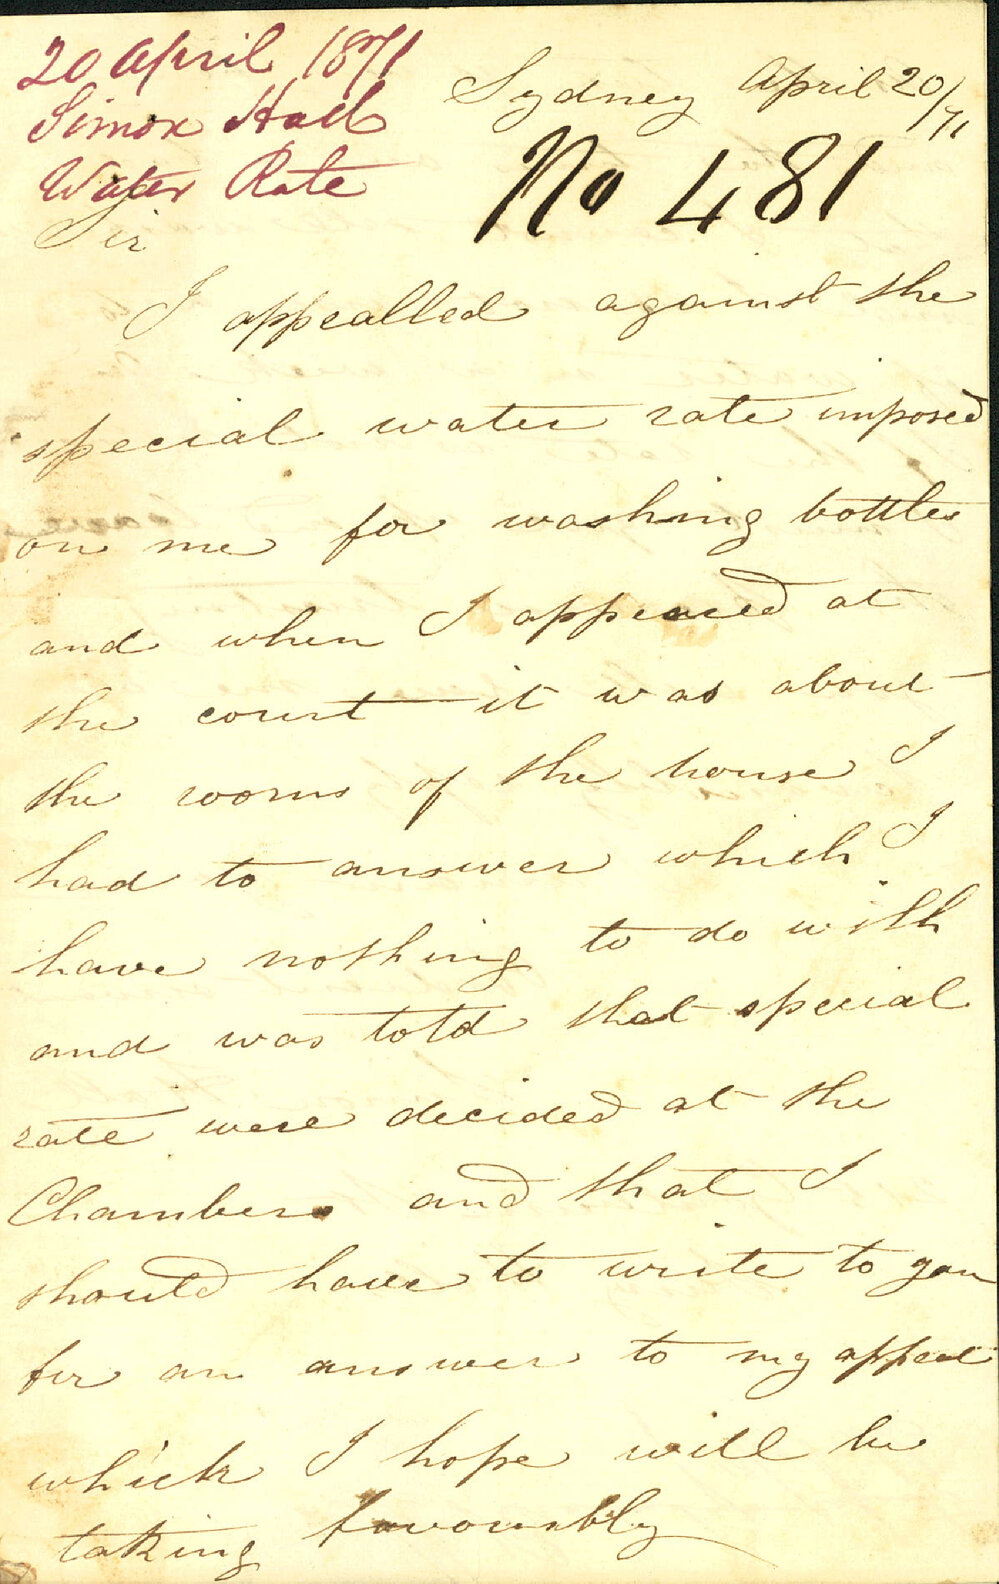 20 April 1871
Simon Hall
Water Rate
Sydney April 20/71
No 481
Sir
I appealled against the
special water rate imposed
on me for washing bottles
and when I appeared at
the court it was about
the rooms of the house I
had to answer which I
have nothing to do with
and was told that special
rate were decided at the
Chambers and that I
should have to write to you
for an answer to my appeal
which I hope will be
taking favourably